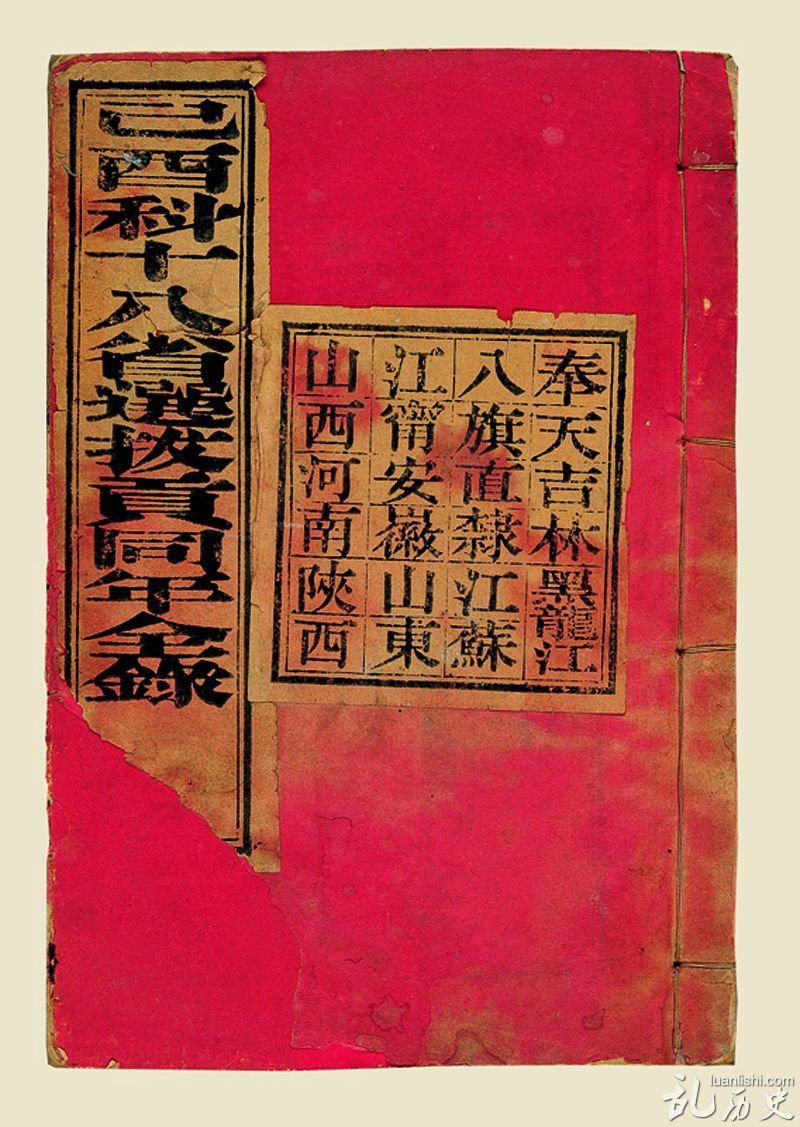 己酉科十八省選拔貢同年全錄
奉天吉林黑龍江
八旗直隸江蘇
江甯安徽山東
山西河南陝西
luanlishi.com
乱历史